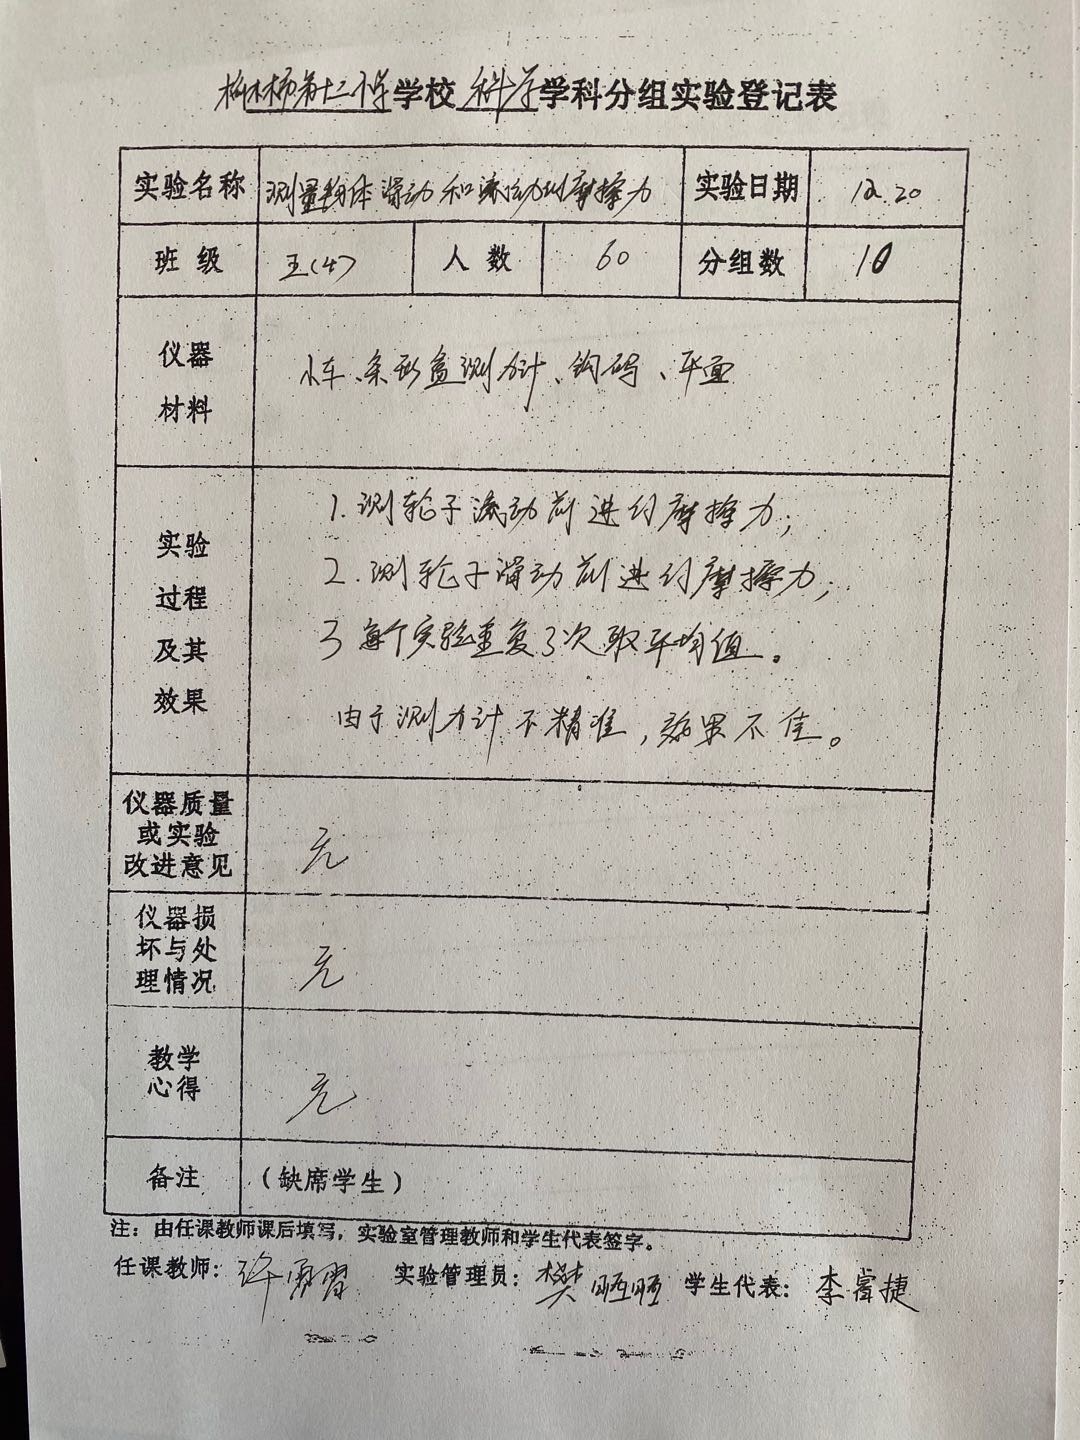 榆林市第十二小学学校 科学学科分组实验登记表
实验名称 测量物体滑动和滚动的摩擦力 实验日期 12.20
班级 五(4) 人数 60 分组数 10
仪器材料 小车、条形盒测力计、钩码、平面
实验过程及其效果
1.测轮子滚动前进的摩擦力;
2.测轮子滑动前进的摩擦力;
3 每个实验重复3次取平均值。
由于测力计不精准,效果不佳。
仪器质量或实验改进意见 无
仪器损坏与处理情况 无
教学心得 无
备注 (缺席学生)
注:由任课教师课后填写,实验室管理教师和学生代表签字。
任课教师: 许 实验管理员:樊 学生代表:李睿捷